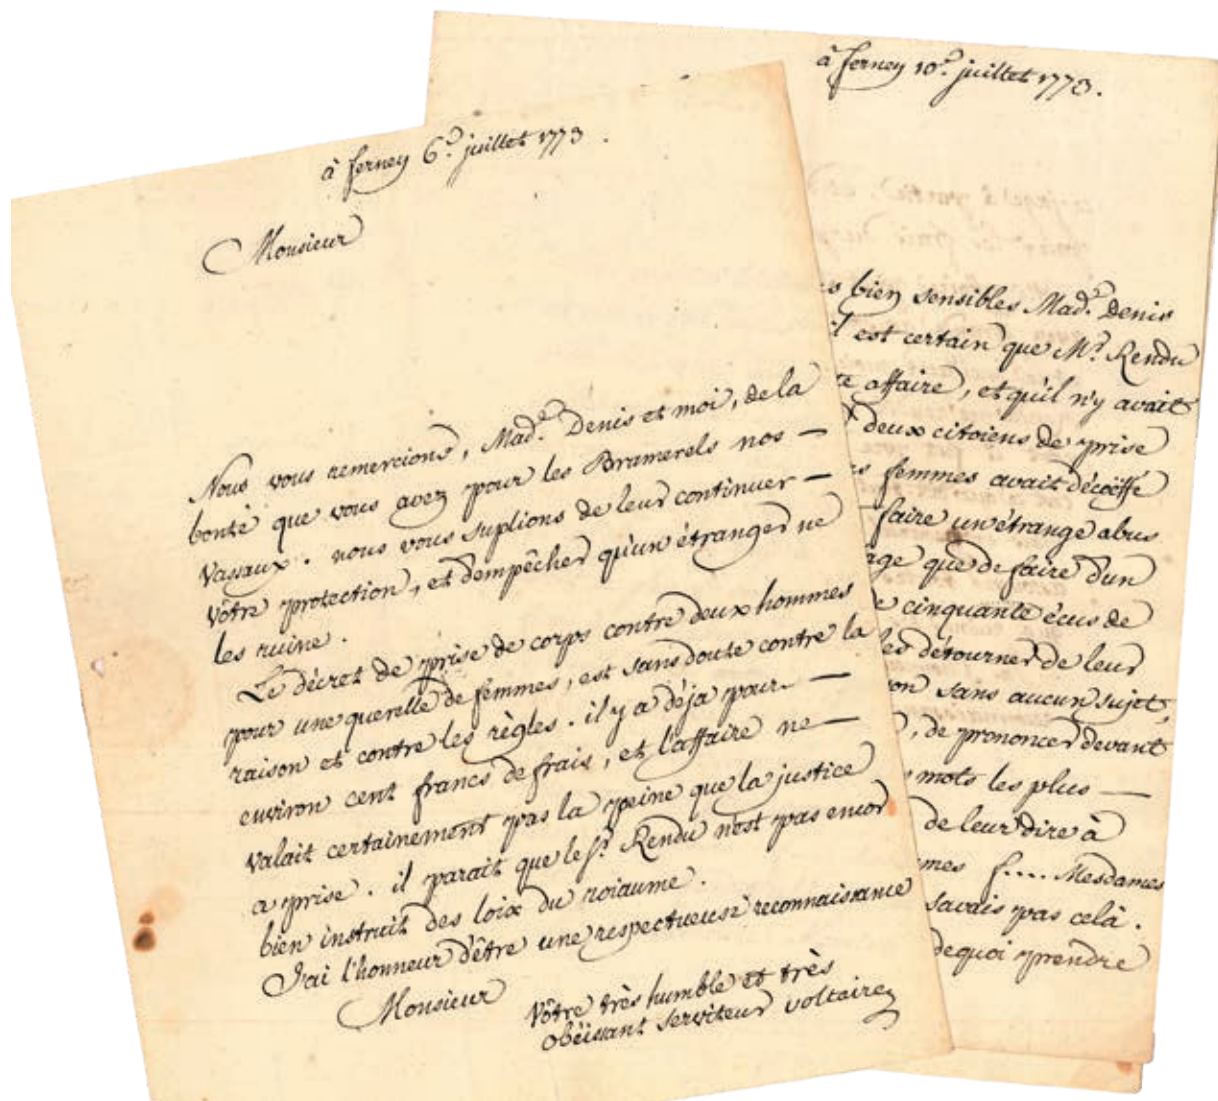 à ferney 6e. juillet 1773.
Monsieur
Nous vous remercions, Made. Denis et moi, de la
bonté que vous avez pour les Bramerels nos
vassaux. nous vous suplions de leur continuer
votre protection, et d'empêcher qu'un étranger ne
les ruine.
Le décret de prise de corps contre deux hommes
pour une querelle de femmes, est sans doute contre la
raison et contre les règles. il y a déja pour
environ cent francs de frais, et l'affaire ne
valait certainement pas la peine que la justice
a prise. il parait que le Sr. Rendu n'est pas encor
bien instruit des loix du roiaume.
J'ai l'honneur d'être une respectueuse reconnaissance
Monsieur
Vôtre très humble et très
obéissant serviteur voltaire
à ferney 10e. juillet 1773.
bien sensibles Made. Denis
il est certain que Mr. Rendu
affaire, et qu'il n'y avait
deux citoiens de prise
femmes avait décoëffé
faire un étrange abus
que de faire d'un
cinquante écus de
les détourner de leur
sans aucun sujet,
, de prononcer devant
mots les plus
de leur dire à
f.... Mesdames
savais pas celà.
dequoi prendre